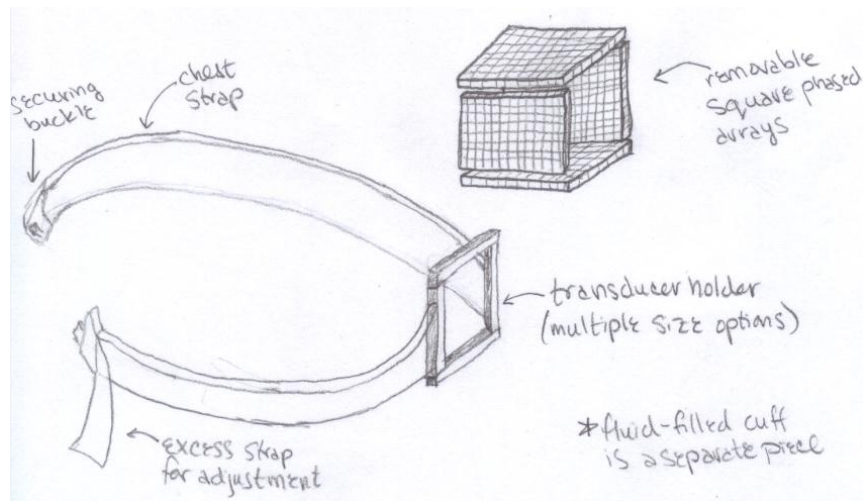 securing
buckle
chest
strap
removable
square phased
arrays
transducer holder
(multiple size options)
excess strap
for adjustment
*fluid-filled cuff
is a separate piece